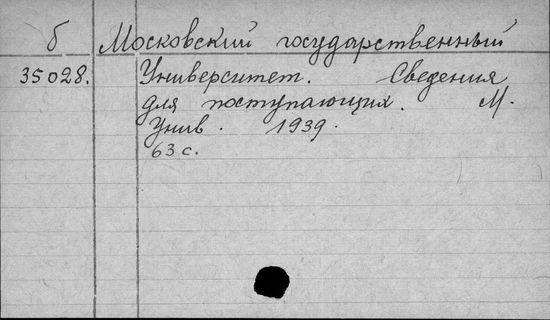 б Московский государственный
35028. Университет. Сведения
для поступающих. М.
Унив. 1939.
63 с.